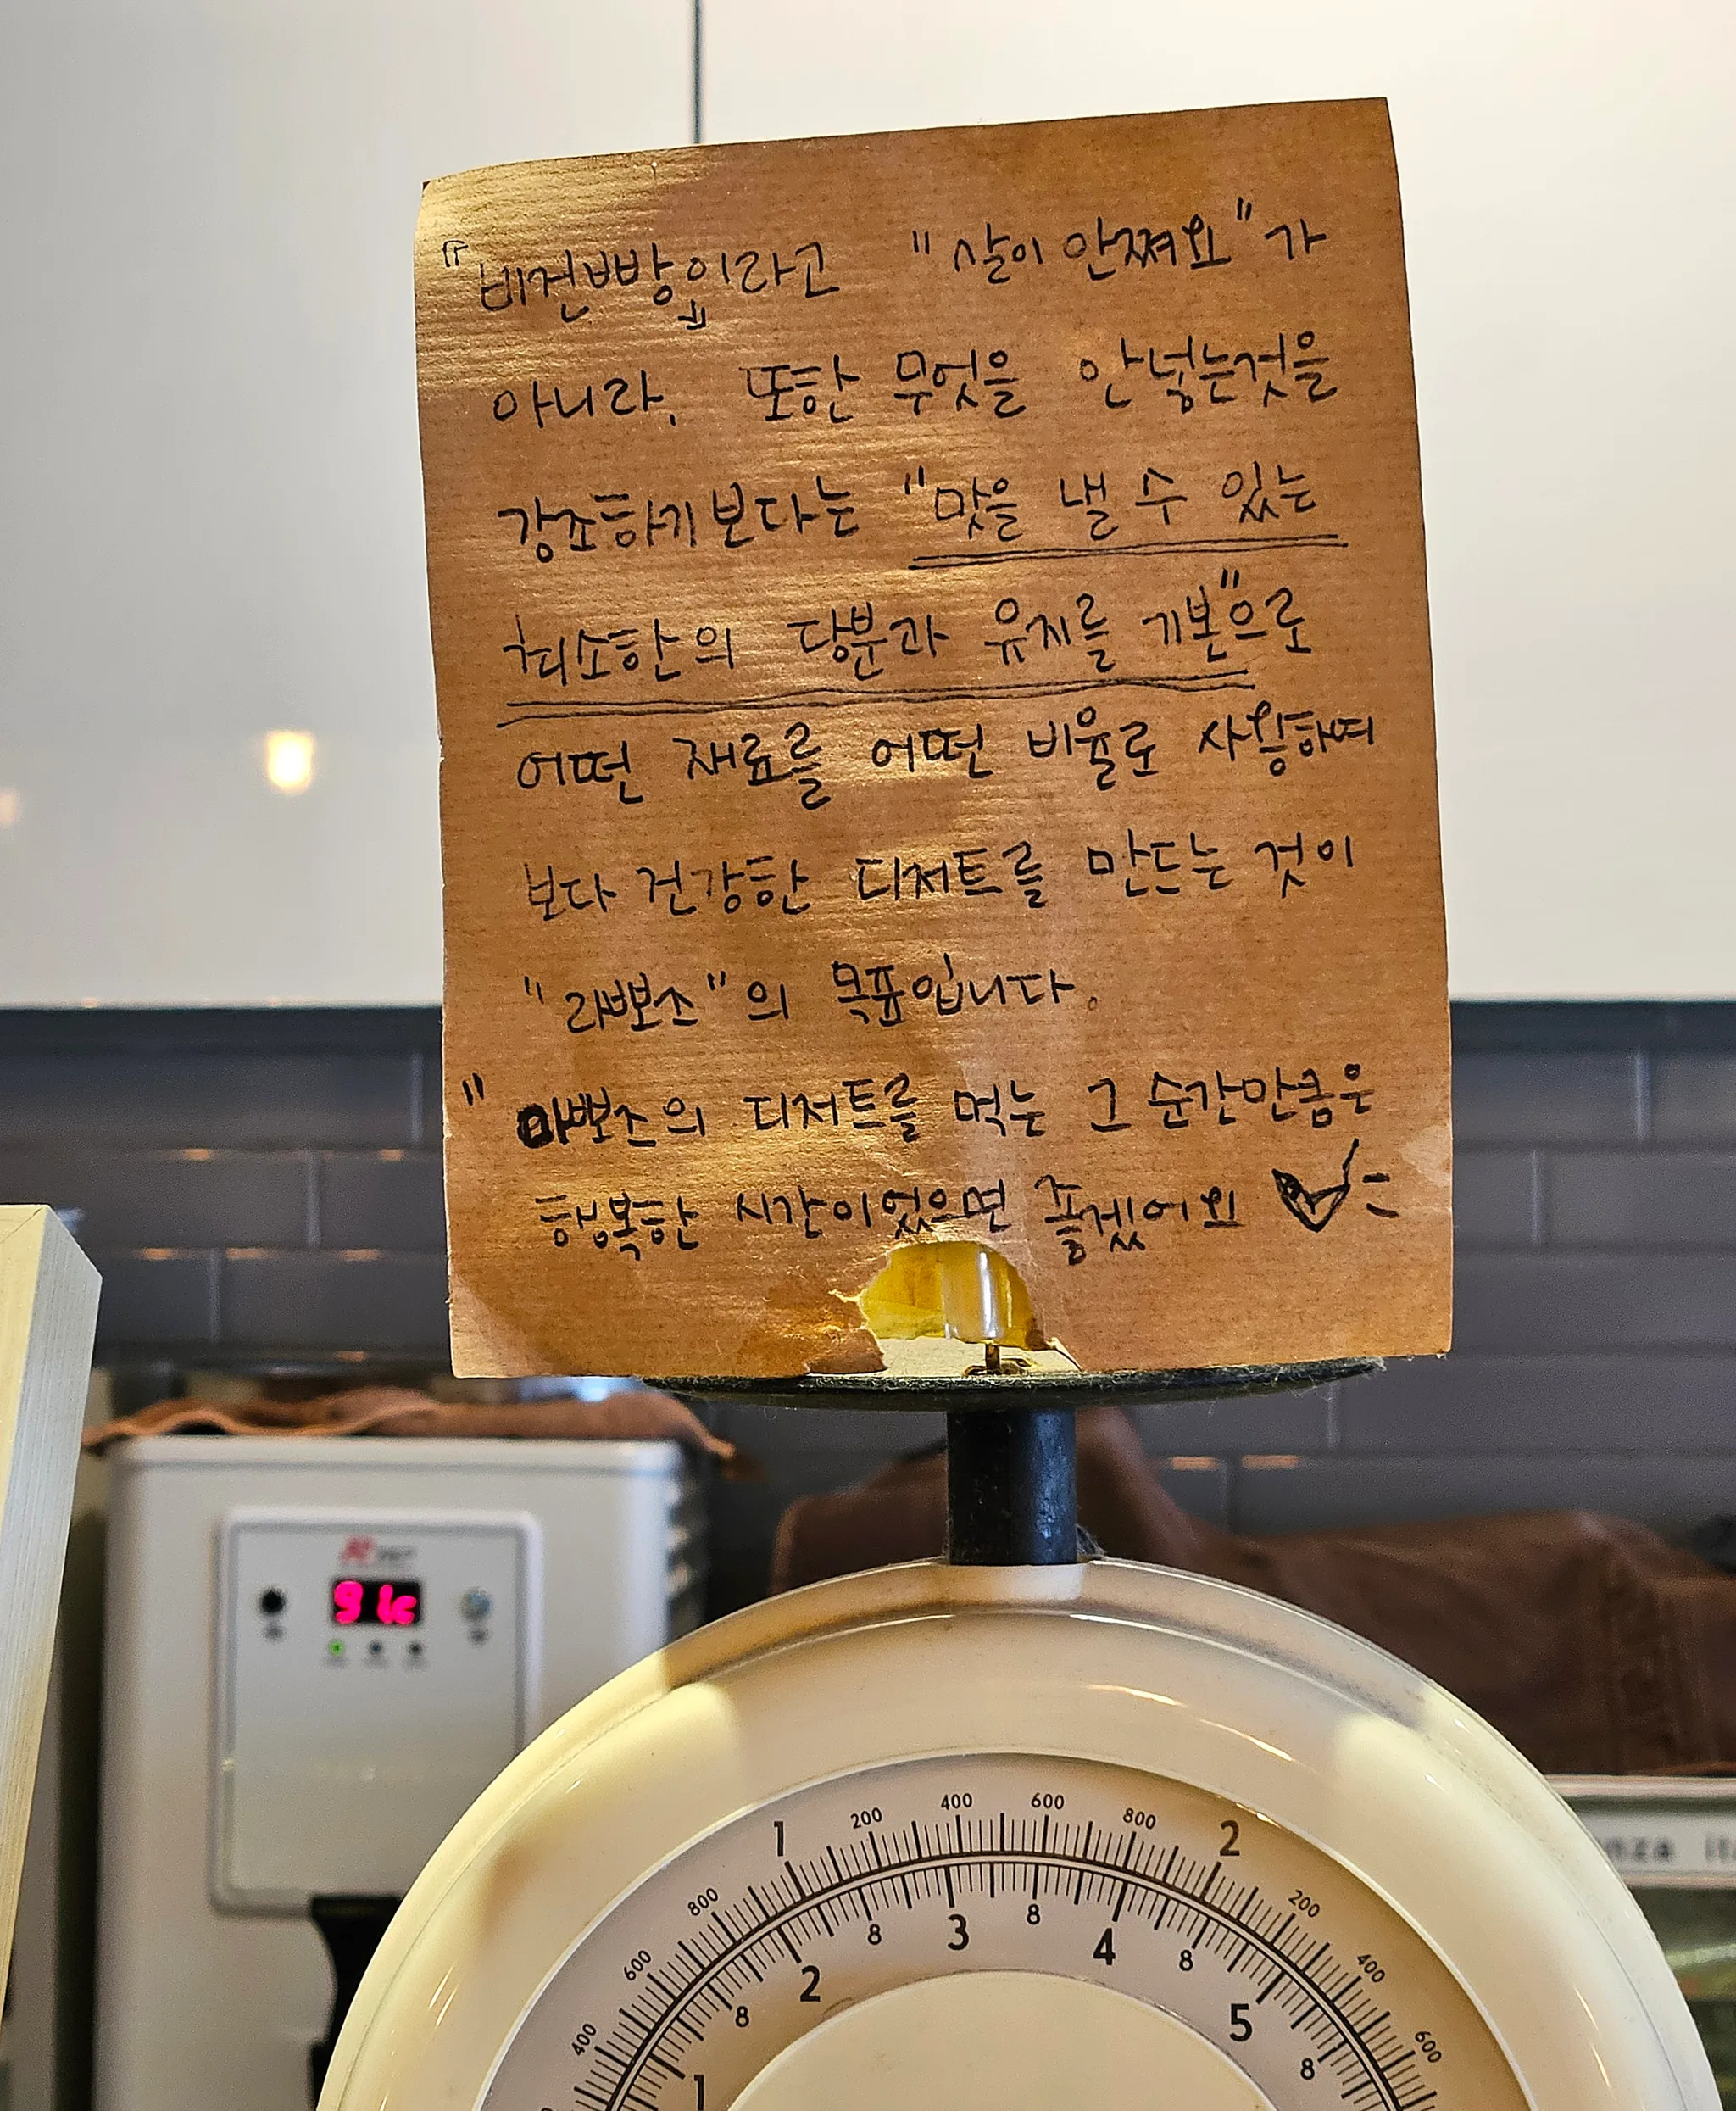 『비건빵』이라고 "살이 안쪄요"가
아니라, 또한 무엇을 안넣는것을
강조하기보다는 "맛을 낼 수 있는
최소한의 당분과 유지를 기본"으로
어떤 재료를 어떤 비율로 사용하여
보다 건강한 디저트를 만드는 것이
"라뽀즈"의 목표입니다.
" 라뽀즈의 디저트를 먹는 그 순간만큼은
행복한 시간이었으면 좋겠어요
91c
1 200 400 600 800 2
800 200
600 400
400 600
8 3 8 4
2 8 8 5
1 8